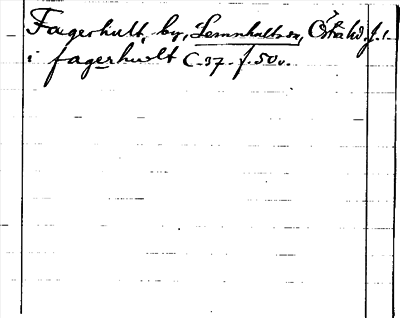 Fagerhult, by, Lemnhults sn, Östra hd. J. l.
i fagerhwlt C. 37. f. 50 v.